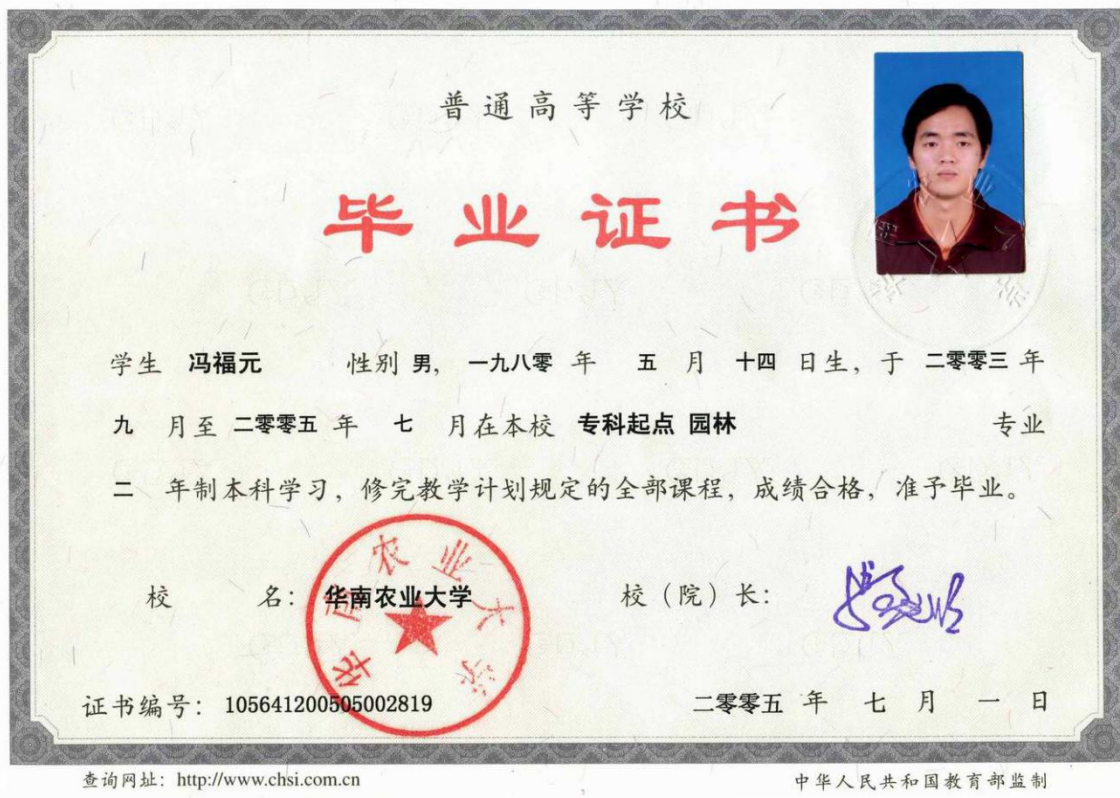 普通高等学校
毕业证书
学生 冯福元 性别 男, 一九八零 年 五 月 十四 日生, 于 二零零三 年
九 月至 二零零五 年 七 月在本校 专科起点 园林 专业
二 年制本科学习, 修完教学计划规定的全部课程, 成绩合格, 准予毕业。
校 名: 华南农业大学 校（院）长:
华南农业大学
证书编号: 105641200505002819 二零零五 年 七 月 一 日
查询网址: http://www.chsi.com.cn 中华人民共和国教育部监制